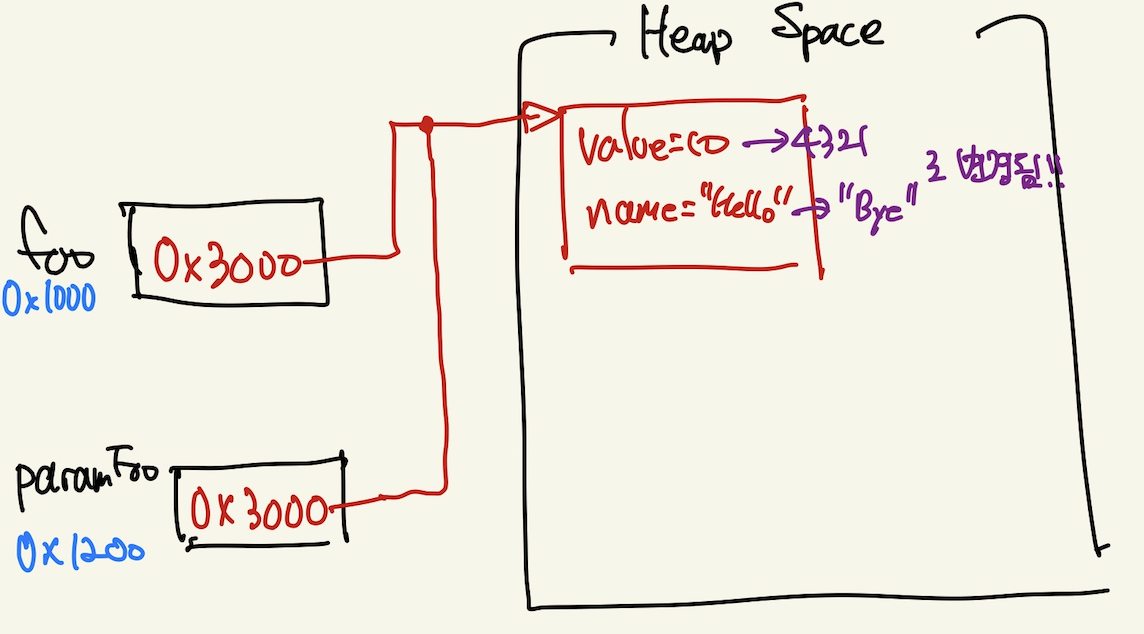 Heap Space
value=10 → 4321
name="Hello" → "Bye"
로 변경됨!!
foo
0x3000
0x1000
paramFoo
0x3000
0x1200